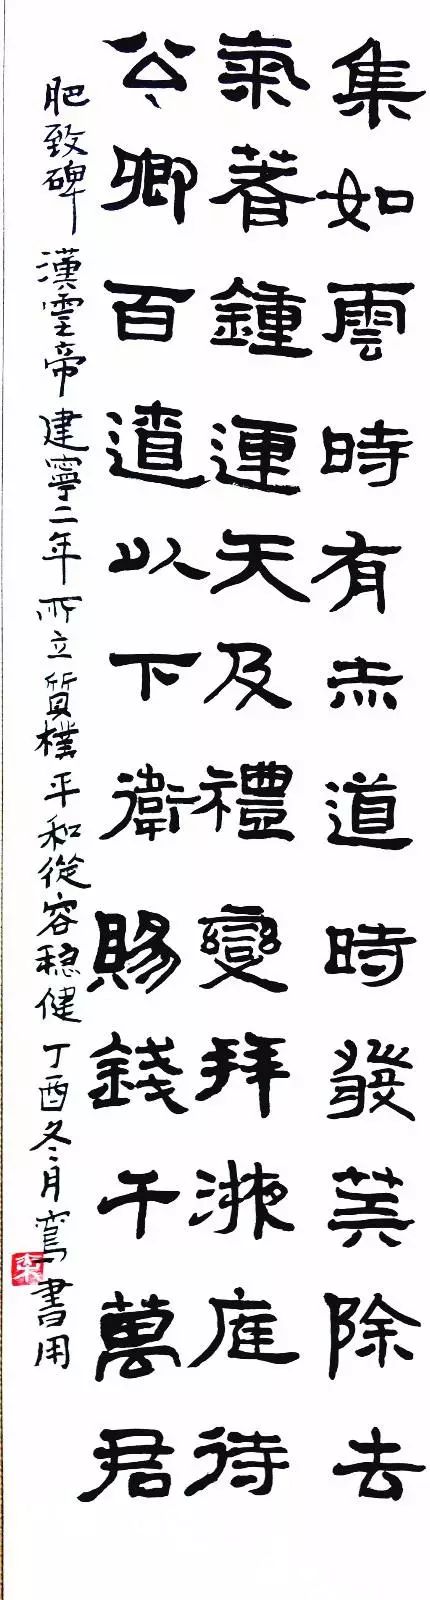 集如雲時有赤道時發筭除去
氣著鍾連天及禮變拜掖庭待
公卿百遼以下衛賜錢千萬君
肥致碑 漢靈帝建寧二年所立質樸平和從容稳健 丁酉冬月鸞書用